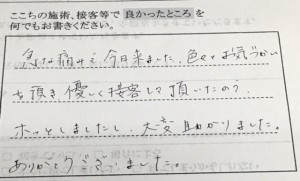 ここちの施術、接客等で良かったところを
何でもお書きください。
急な痛みで、今日来ました。色々とお気づかい
も頂き優しく接客して頂いたので、
ホッとしましたし、大変助かりました。
ありがとうございました。